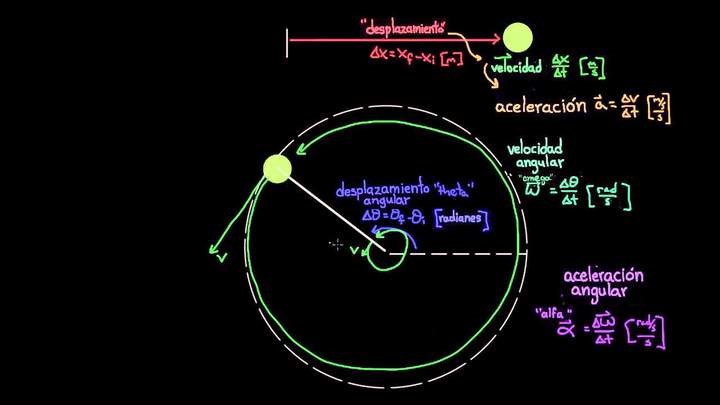 "desplazamiento"
Δx = x_f - x_i [m]
velocidad Δx/Δt [m/s]
aceleración a = Δv/Δt [m/s/s]
velocidad
angular
"omega"
ω = Δθ/Δt [rad/s]
desplazamiento "theta"
angular
Δθ = θ_f - θ_i [radianes]
v
v
aceleración
angular
"alfa"
α = Δω/Δt [rad/s/s]